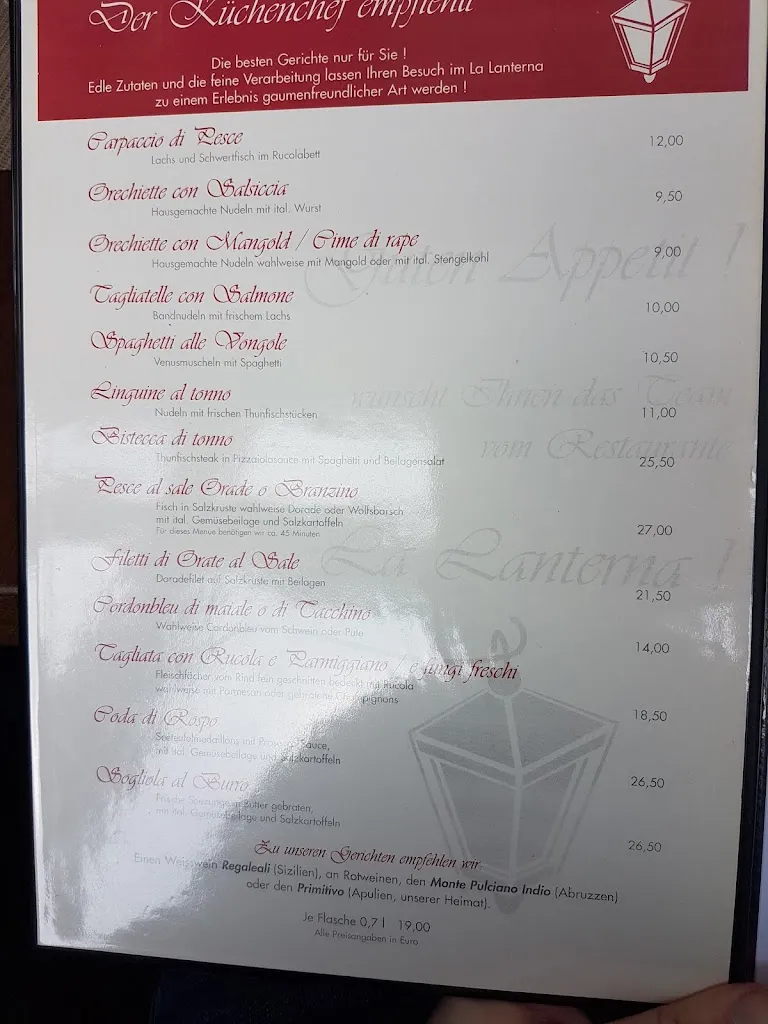 Der Küchenchef empfiehlt
Die besten Gerichte nur für Sie !
Edle Zutaten und die feine Verarbeitung lassen Ihren Besuch im La Lanterna
zu einem Erlebnis gaumenfreundlicher Art werden !
Carpaccio di Pesce 12,00
Lachs und Schwertfisch im Rucolabett
Orechiette con Salsiccia 9,50
Hausgemachte Nudeln mit ital. Wurst
Orechiette con Mangold / Cime di rape 9,00
Hausgemachte Nudeln wahlweise mit Mangold oder mit ital. Stengelkohl
Guten Appetit !
Tagliatelle con Salmone 10,00
Bandnudeln mit frischem Lachs
Spaghetti alle Vongole 10,50
Venusmuscheln mit Spaghetti
wünscht Ihnen das Team
Linguine al tonno 11,00
Nudeln mit frischen Thunfischstücken
vom Restaurante
Bistecca di tonno 25,50
Thunfischsteak in Pizzaiolasauce mit Spaghetti und Beilagensalat
Pesce al sale Orade o Branzino 27,00
Fisch in Salzkruste wahlweise Dorade oder Wolfsbarsch
mit ital. Gemüsebeilage und Salzkartoffeln
Für dieses Menue benötigen wir ca. 45 Minuten
La Lanterna !
Filetti di Orate al Sale 21,50
Doradefilet auf Salzkruste mit Beilagen
Cordonbleu di maiale o di Tacchino 14,00
Wahlweise Cordonbleu vom Schwein oder Pute
Tagliata con Rucola e Parmiggiano / e fungi freschi 18,50
Fleischfächer vom Rind fein geschnitten bedeckt mit Rucola
wahlweise mit Parmesan oder gebratene Champignons
Coda di Rospo 26,50
Seeteufelmedaillons mit Prosecco Sauce,
mit ital. Gemüsebeilage und Salzkartoffeln
Sogliola al Burro 26,50
Frische Seezunge in Butter gebraten,
mit ital. Gemüsebeilage und Salzkartoffeln
Zu unseren Gerichten empfehlen wir
Einen Weisswein Regaleali (Sizilien), an Rotweinen, den Monte Pulciano Indio (Abruzzen)
oder den Primitivo (Apulien, unserer Heimat).
Je Flasche 0,7 l 19,00
Alle Preisangaben in Euro